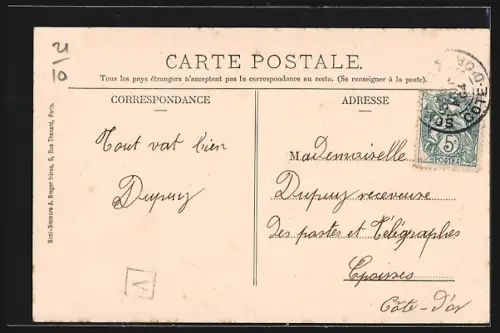 21
10
CARTE POSTALE.
Tous les pays étrangers n'acceptent pas la correspondance au recto. (Se renseigner à la poste).
CORRESPONDANCE
ADRESSE
Tout vat bien
Dupuy
Mademoiselle
Dupuy receveuse
des postes et Télégraphes
Epoisses
Côte-d'or
5c
POSTES
CÔTE-D'OR
V
Simi-Bromure A. Breger frères, 9, Rue Thénard, Paris.